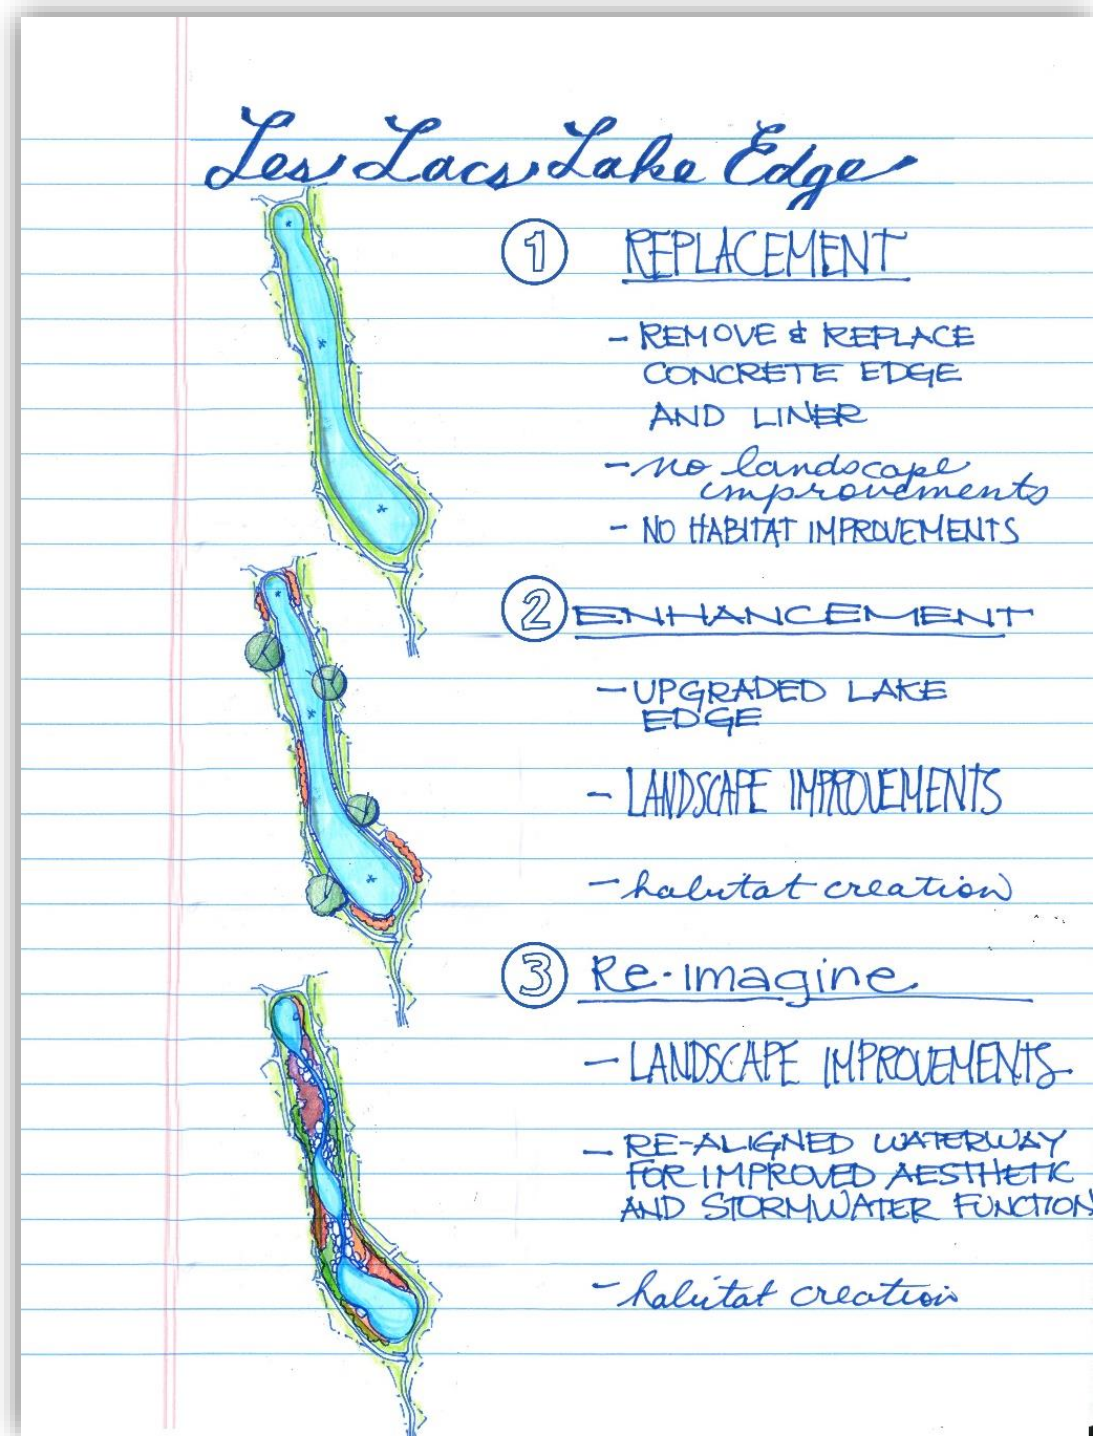 Les Lacs Lake Edge
1 REPLACEMENT
- REMOVE & REPLACE
CONCRETE EDGE
AND LINER
- no landscape
improvements
- NO HABITAT IMPROVEMENTS
2 ENHANCEMENT
- UPGRADED LAKE
EDGE
- LANDSCAPE IMPROVEMENTS
- habitat creation
3 Re-imagine
- LANDSCAPE IMPROVEMENTS
- RE-ALIGNED WATERWAY
FOR IMPROVED AESTHETIC
AND STORMWATER FUNCTION
- habitat creation